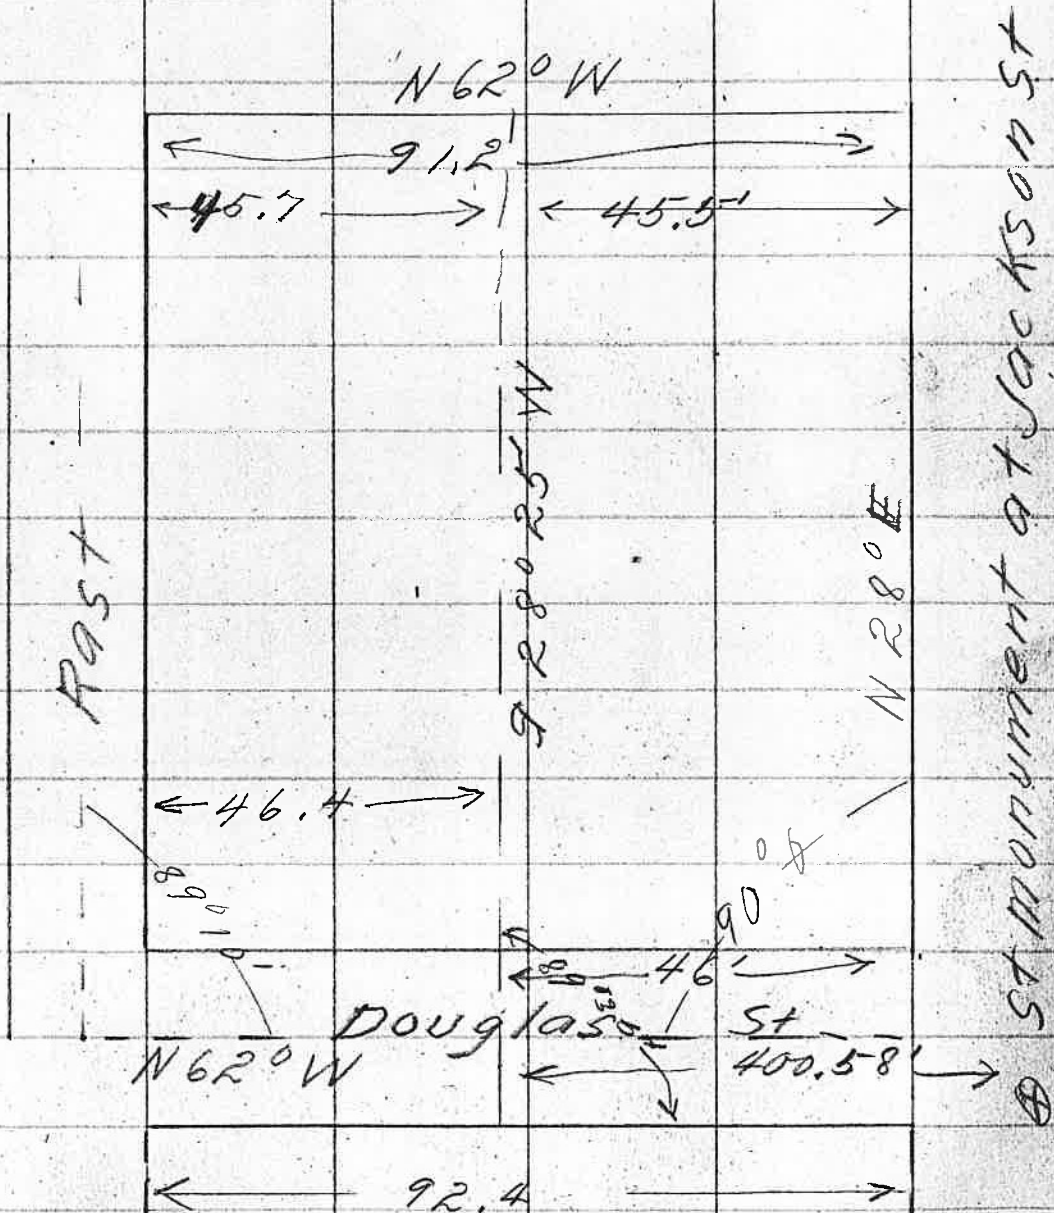 N 62° W
91.2'
45.7
45.5'
S 28° 25' W
N 28° E
Past
St monument at Jackson St
46.4
90°
89° 10'
46'
Douglas St
N 62° W
400.58'
92.4